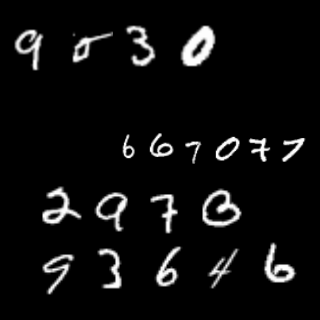 9530
667077
2973
93646